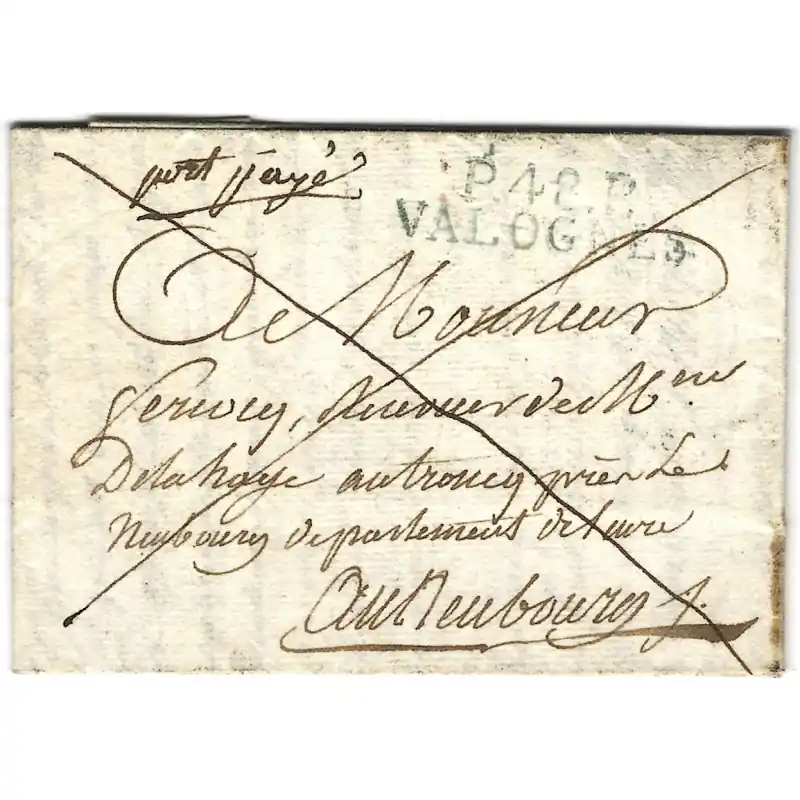 port payé
P.48.P.
VALOGNES
De Monsieur
receveur de M
Delahaye au troncq près Le
Neubourg departement de Leure
Au Neubourg